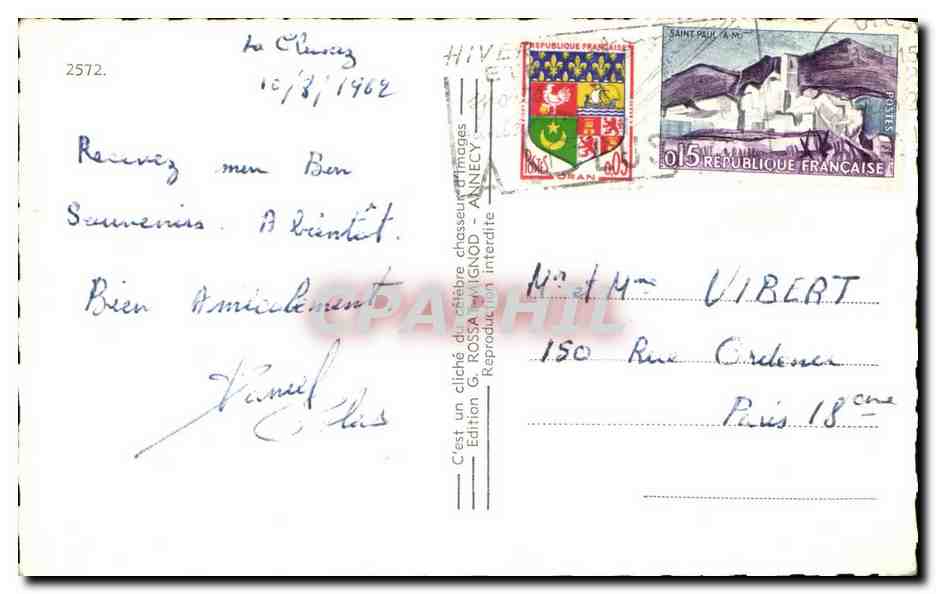 2572.
La Clusaz
10/8/1962
Recevez mon Bon
Souvenirs. A bientôt.
Bien Amicalement
C'est un cliché du célèbre chasseur d'images
Edition G. ROSSAT-MIGNOD - ANNECY
Reproduction interdite
HIVER
REPUBLIQUE FRANÇAISE
POSTES
0,05
ORAN
SAINT-PAUL (A-M)
POSTES
0,15 RÉPUBLIQUE FRANÇAISE
Mr et Mme VIBERT
150 Rue Ordener
Paris 18eme
CPAPHIL